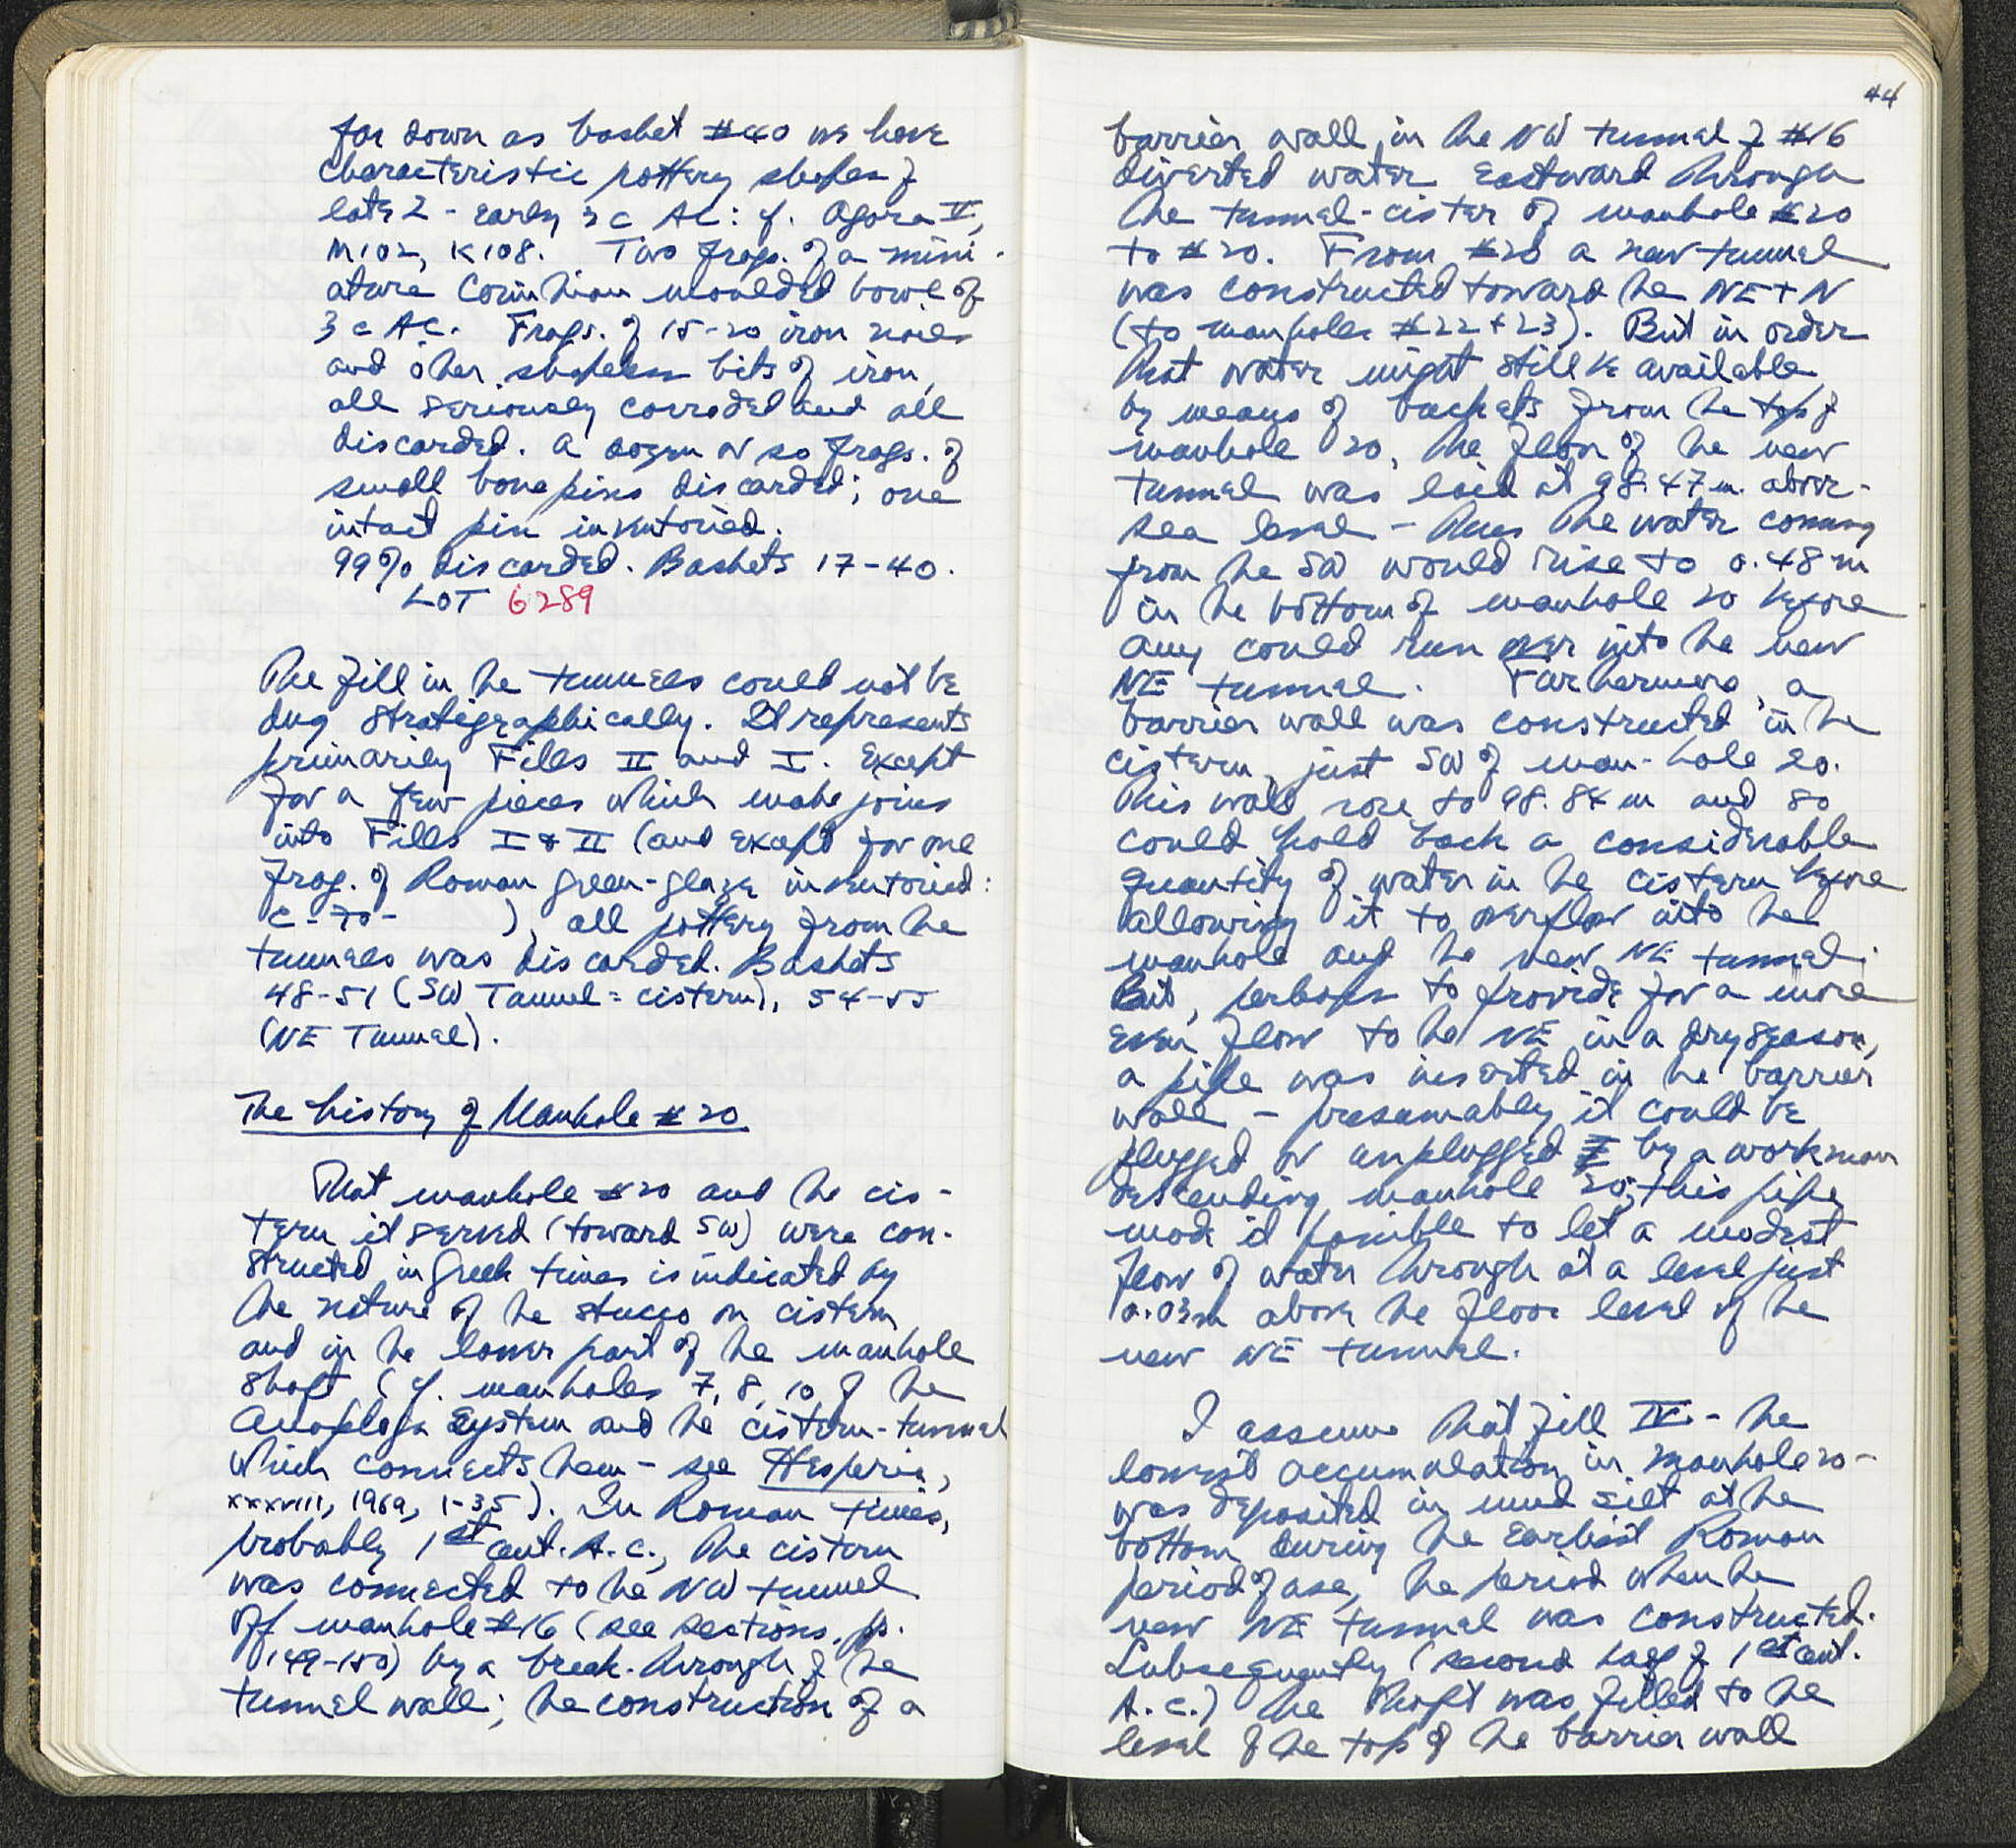 far down as basket #40 we have
characteristic pottery shapes of
late 2 - early 3 c AC: cf. Agora V,
M102, K108. Two frags. of a mini-
ature Corinthian moulded bowl of
3 c AC. Frags. of 15-20 iron nails
and other shapeless bits of iron,
all seriously corroded and all
discarded. A dozen or so frags. of
small bone pins discarded; one
intact pin inventoried.
99% discarded. Baskets 17-40.
LOT 6289
The fill in the tunnels could not be
dug stratigraphically. It represents
primarily Fills II and I. Except
for a few pieces which make joins
into Fills I & II (and except for one
frag. of Roman green-glaze inventoried:
C-70- ), all pottery from the
tunnels was discarded. Baskets
48-51 (SW Tunnel = cistern), 54-55
(NE Tunnel).
The history of Manhole #20
That manhole #20 and the cis-
tern it served (toward SW) were con-
structed in Greek times is indicated by
the nature of the stucco on cistern
and in the lower part of the manhole
shaft (cf. manholes 7, 8, 10 of the
Anaploga System and the cistern-tunnel
which connects them - see Hesperia,
XXXVIII, 1969, 1-35). In Roman times,
probably 1st cent. A.C., the cistern
was connected to the NW tunnel
off manhole #16 (see sections, pp.
149-150) by a break-through of the
tunnel wall; the construction of a
44
barrier wall in the NW tunnel of #16
diverted water eastward through
the tunnel-cister of manhole #20
to #20. From #20 a new tunnel
was constructed toward the NE + N
(to manholes #22 + 23). But in order
that water might still be available
by means of buckets from the top of
manhole 20, the floor of the new
tunnel was laid at 98.47 m. above-
sea level - thus the water coming
from the SW would rise to 0.48 m
in the bottom of manhole 20 before
any could run over into the new
NE tunnel. Furthermore, a
barrier wall was constructed in the
cistern, just SW of man-hole 20.
This wall rose to 98.84 m and so
could hold back a considerable
quantity of water in the cistern before
allowing it to overflow into the
manhole and the new NE tunnel.
But, perhaps to provide for a more
even flow to the NE in a dry season,
a pipe was inserted in the barrier
wall - presumably it could be
plugged or unplugged by a workman
descending manhole 20; this pipe
made it possible to let a modest
flow of water through at a level just
0.03m above the floor level of the
new NE tunnel.
I assume that fill IV - the
lowest accumulation in manhole 20 -
was deposited in mud silt at the
bottom during the earliest Roman
period of use, the period when the
new NE tunnel was constructed.
Subsequently (second half of 1st cent.
A.C.) the shaft was filled to the
level of the top of the barrier wall